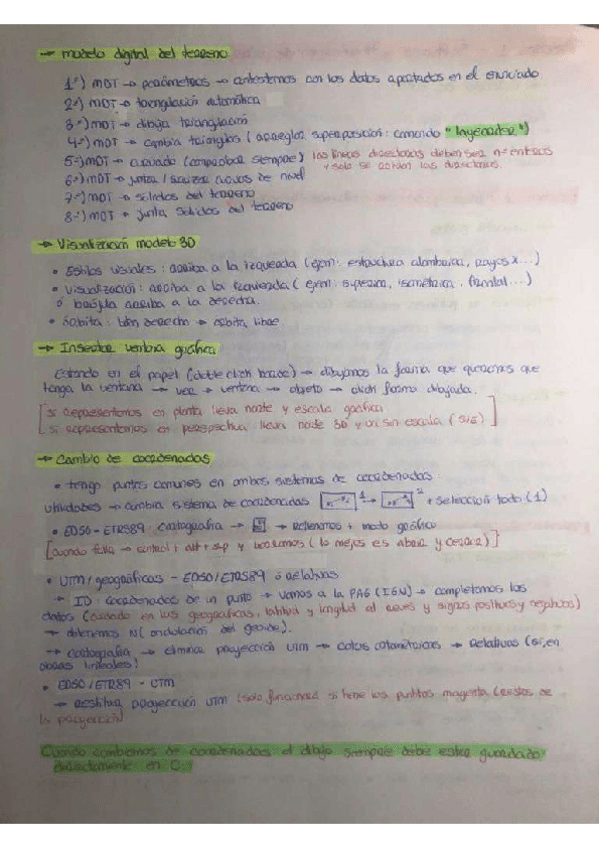 → modelo digital del terreno
1º) MDT → parámetros → contestamos con los datos aportados en el enunciado
2º) MDT → triangulación automática
3º) MDT → dibuja triangulación
4º) MDT → cambia triángulos (arreglar superposición: comando "
5º) MDT → curvado (comprobar siempre) las líneas directoras deben ser nº enteros
y solo se acotan las directoras.
6º) MDT → juntar / suavizar curvas de nivel
7º) MDT → sólidos del terreno
8º) MDT → junta sólidos del terreno
→ Visualización modelo 3D
• Estilos visuales: arriba a la izquierda (ejm: estructura alámbrica, rayos x...)
• Visualización: arriba a la izquierda (ejm: superior, isométrica, frontal...)
ó brújula arriba a la derecha.
• órbita: btn derecho → órbita libre
→ Insertar ventana gráfica
Estando en el papel (doble click fuera) → dibujamos la forma que queramos que
tenga la ventana → ver → ventana → objeto → click forma dibujada.
[si representamos en planta lleva norte y escala gráfica
si representamos en perspectiva lleva norte 3D y va sin escala (S/E)]
→ Cambio de coordenadas
• tengo puntos comunes en ambos sistemas de coordenadas
utilidades → cambia sistema de coordenadas 1 → 2 + selección todo (1)
• ED50 - ETRS89: cartografía → → Rellenamos + modo gráfico
[cuando falla → control + alt + sup y buscamos (lo mejor es abrir y cerrar)]
• UTM / geográficas - ED50/ETRS89 ó relativas
→ ID: coordenadas de un punto → vamos a la PAG (IGN) → completamos los
datos (cuidado en las geográficas, latitud y longitud al revés y signos positivos y negativos)
→ obtenemos N (ondulación del geoide).
→ cartografía → eliminar proyección UTM → cotas ortométricas → Relativas (si, en
obras lineales)
• ED50 / ETRS89 - UTM
→ Restituir proyección UTM (solo funcionará si tiene los puntitos magenta (restos de
la proyección)
Cuando cambiemos de coordenadas el dibujo siempre debe estar guardado
directamente en C: